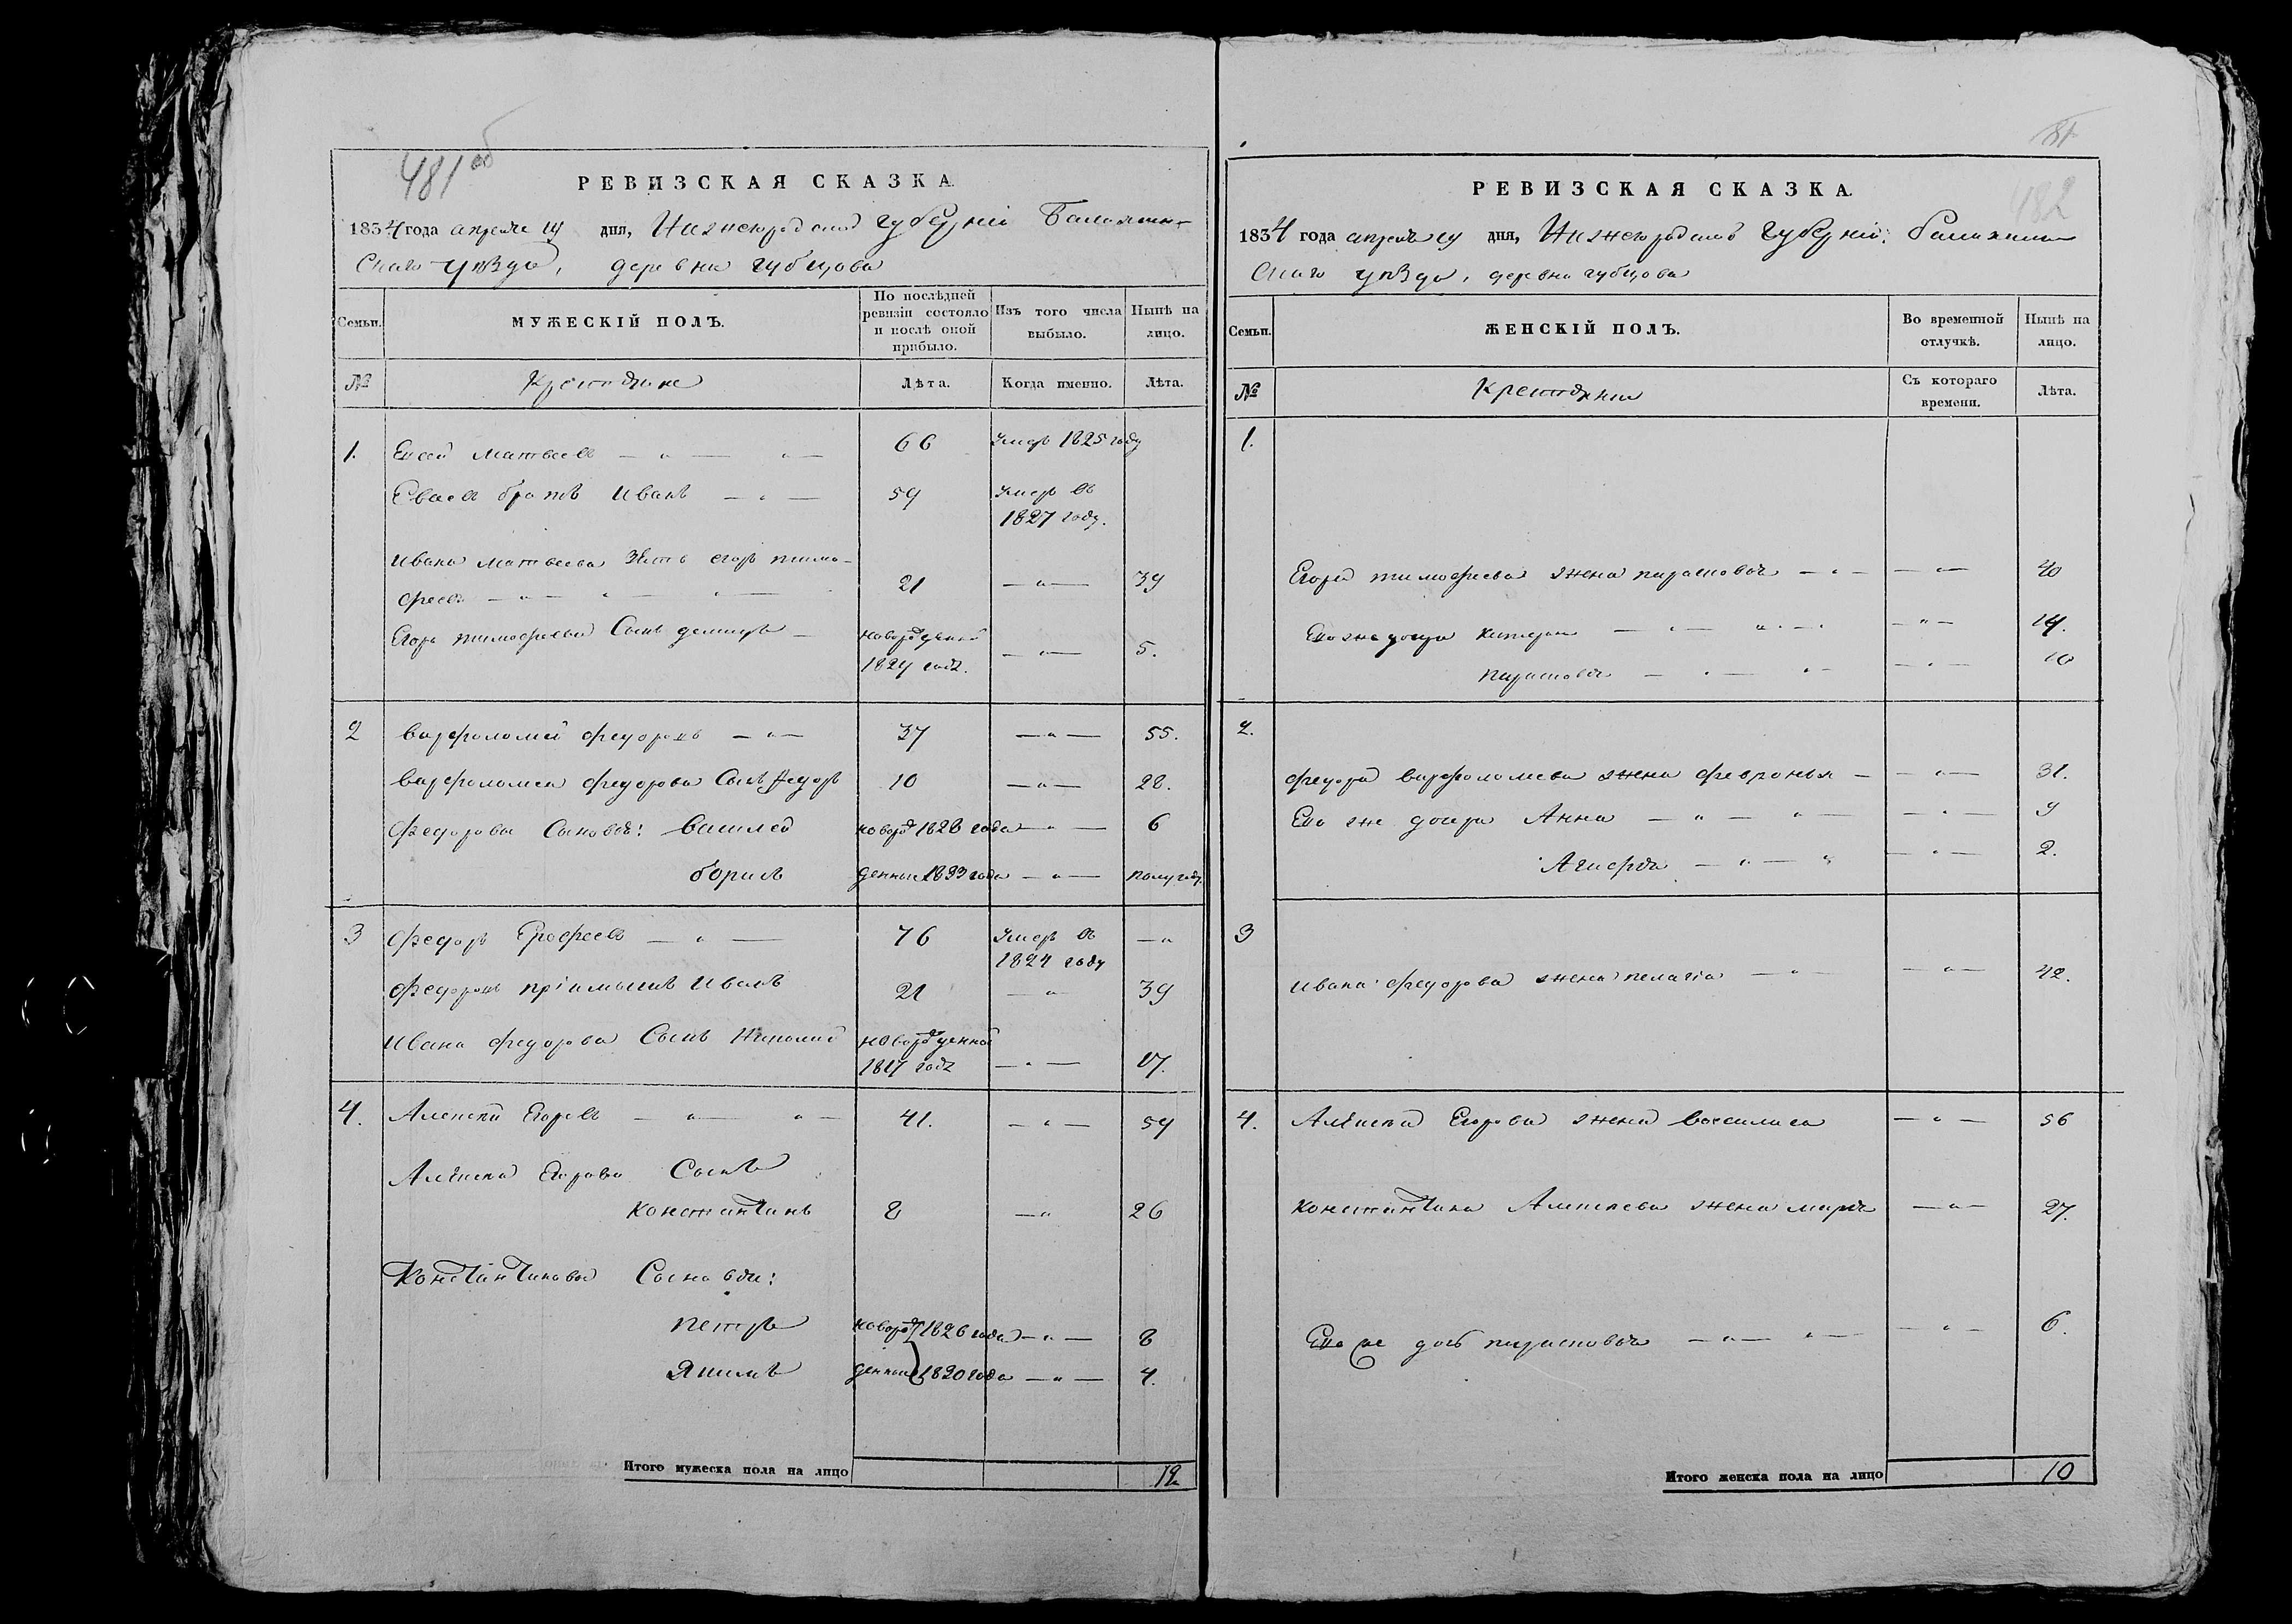 481 об
РЕВИЗСКАЯ СКАЗКА.
1834 года апреля дня, Нижегородской губернiи Балахнин-
скаго уѣзда, деревни губцова
Семьи. МУЖЕСКІЙ ПОЛЪ. По послѣдней ревизіи состояло и послѣ оной прибыло. Изъ того числа выбыло. Нынѣ на лицо.
№ Крестьяне Лѣта. Когда именно. Лѣта.
1. Матвеевъ — " — " — 66 Умеръ 1825 году
братъ Иванъ — " — 59 Умеръ въ
1827 году.
Ивана Матвеева зять егоръ тимо-
феевъ — " — " — " — 21 — " — 39
Егора тимофеева Сынъ новорожденной
1829 года. — " — 5.
2 варфоломей федоровъ — " — 37 — " — 55.
варфоломея федорова Сынъ федоръ 10 — " — 28.
Федоровы Сыновья: василей новорож 1828 года — " — 6
борисъ денные 1833 года — " — полугоду
3 Федоръ Ерофеевъ — " — 76 Умеръ въ — "
1824 году
Федоровъ прiемышъ Иванъ 21 — " — 39
Ивана федорова Сынъ новорожденной
1817 года — " — 17.
4. Алексей Егоровъ — " — " — 41. — " — 59
Алексея Егорова Сынъ
Константинъ 8 — " 26
Константиновы Сыновья:
петръ новорож 1826 года — " — 8
Якимъ денные 1830 года — " — 4.
Итого мужеска пола на лицо 12
482
РЕВИЗСКАЯ СКАЗКА.
1834 года апреля дня, Нижегородской губернiи Балахнин
скаго уѣзда, деревни губцова
Семьи. ЖЕНСКІЙ ПОЛЪ. Во временной отлучкѣ. Нынѣ на лицо.
№ Крестьяне Съ котораго времени. Лѣта.
1.
Егора тимофеева жена парасковья — " — — " — 40
Его же дочери катерина — " — " — " — " — 14.
парасковья — " — " — — " — 10
2.
федора варфоломеева жена февронья — — " — 31.
Его же дочери Анна — " — " — — " — 9
— " — " — " — 2.
3
Ивана федорова жена пелагiа — " — — " — 42.
4. Алексея Егорова жена василиса — " — 56
Константина Алексеева жена марья — " — 27.
Его же дочь парасковья — " — " — — " — 6.
Итого женска пола на лицо 10